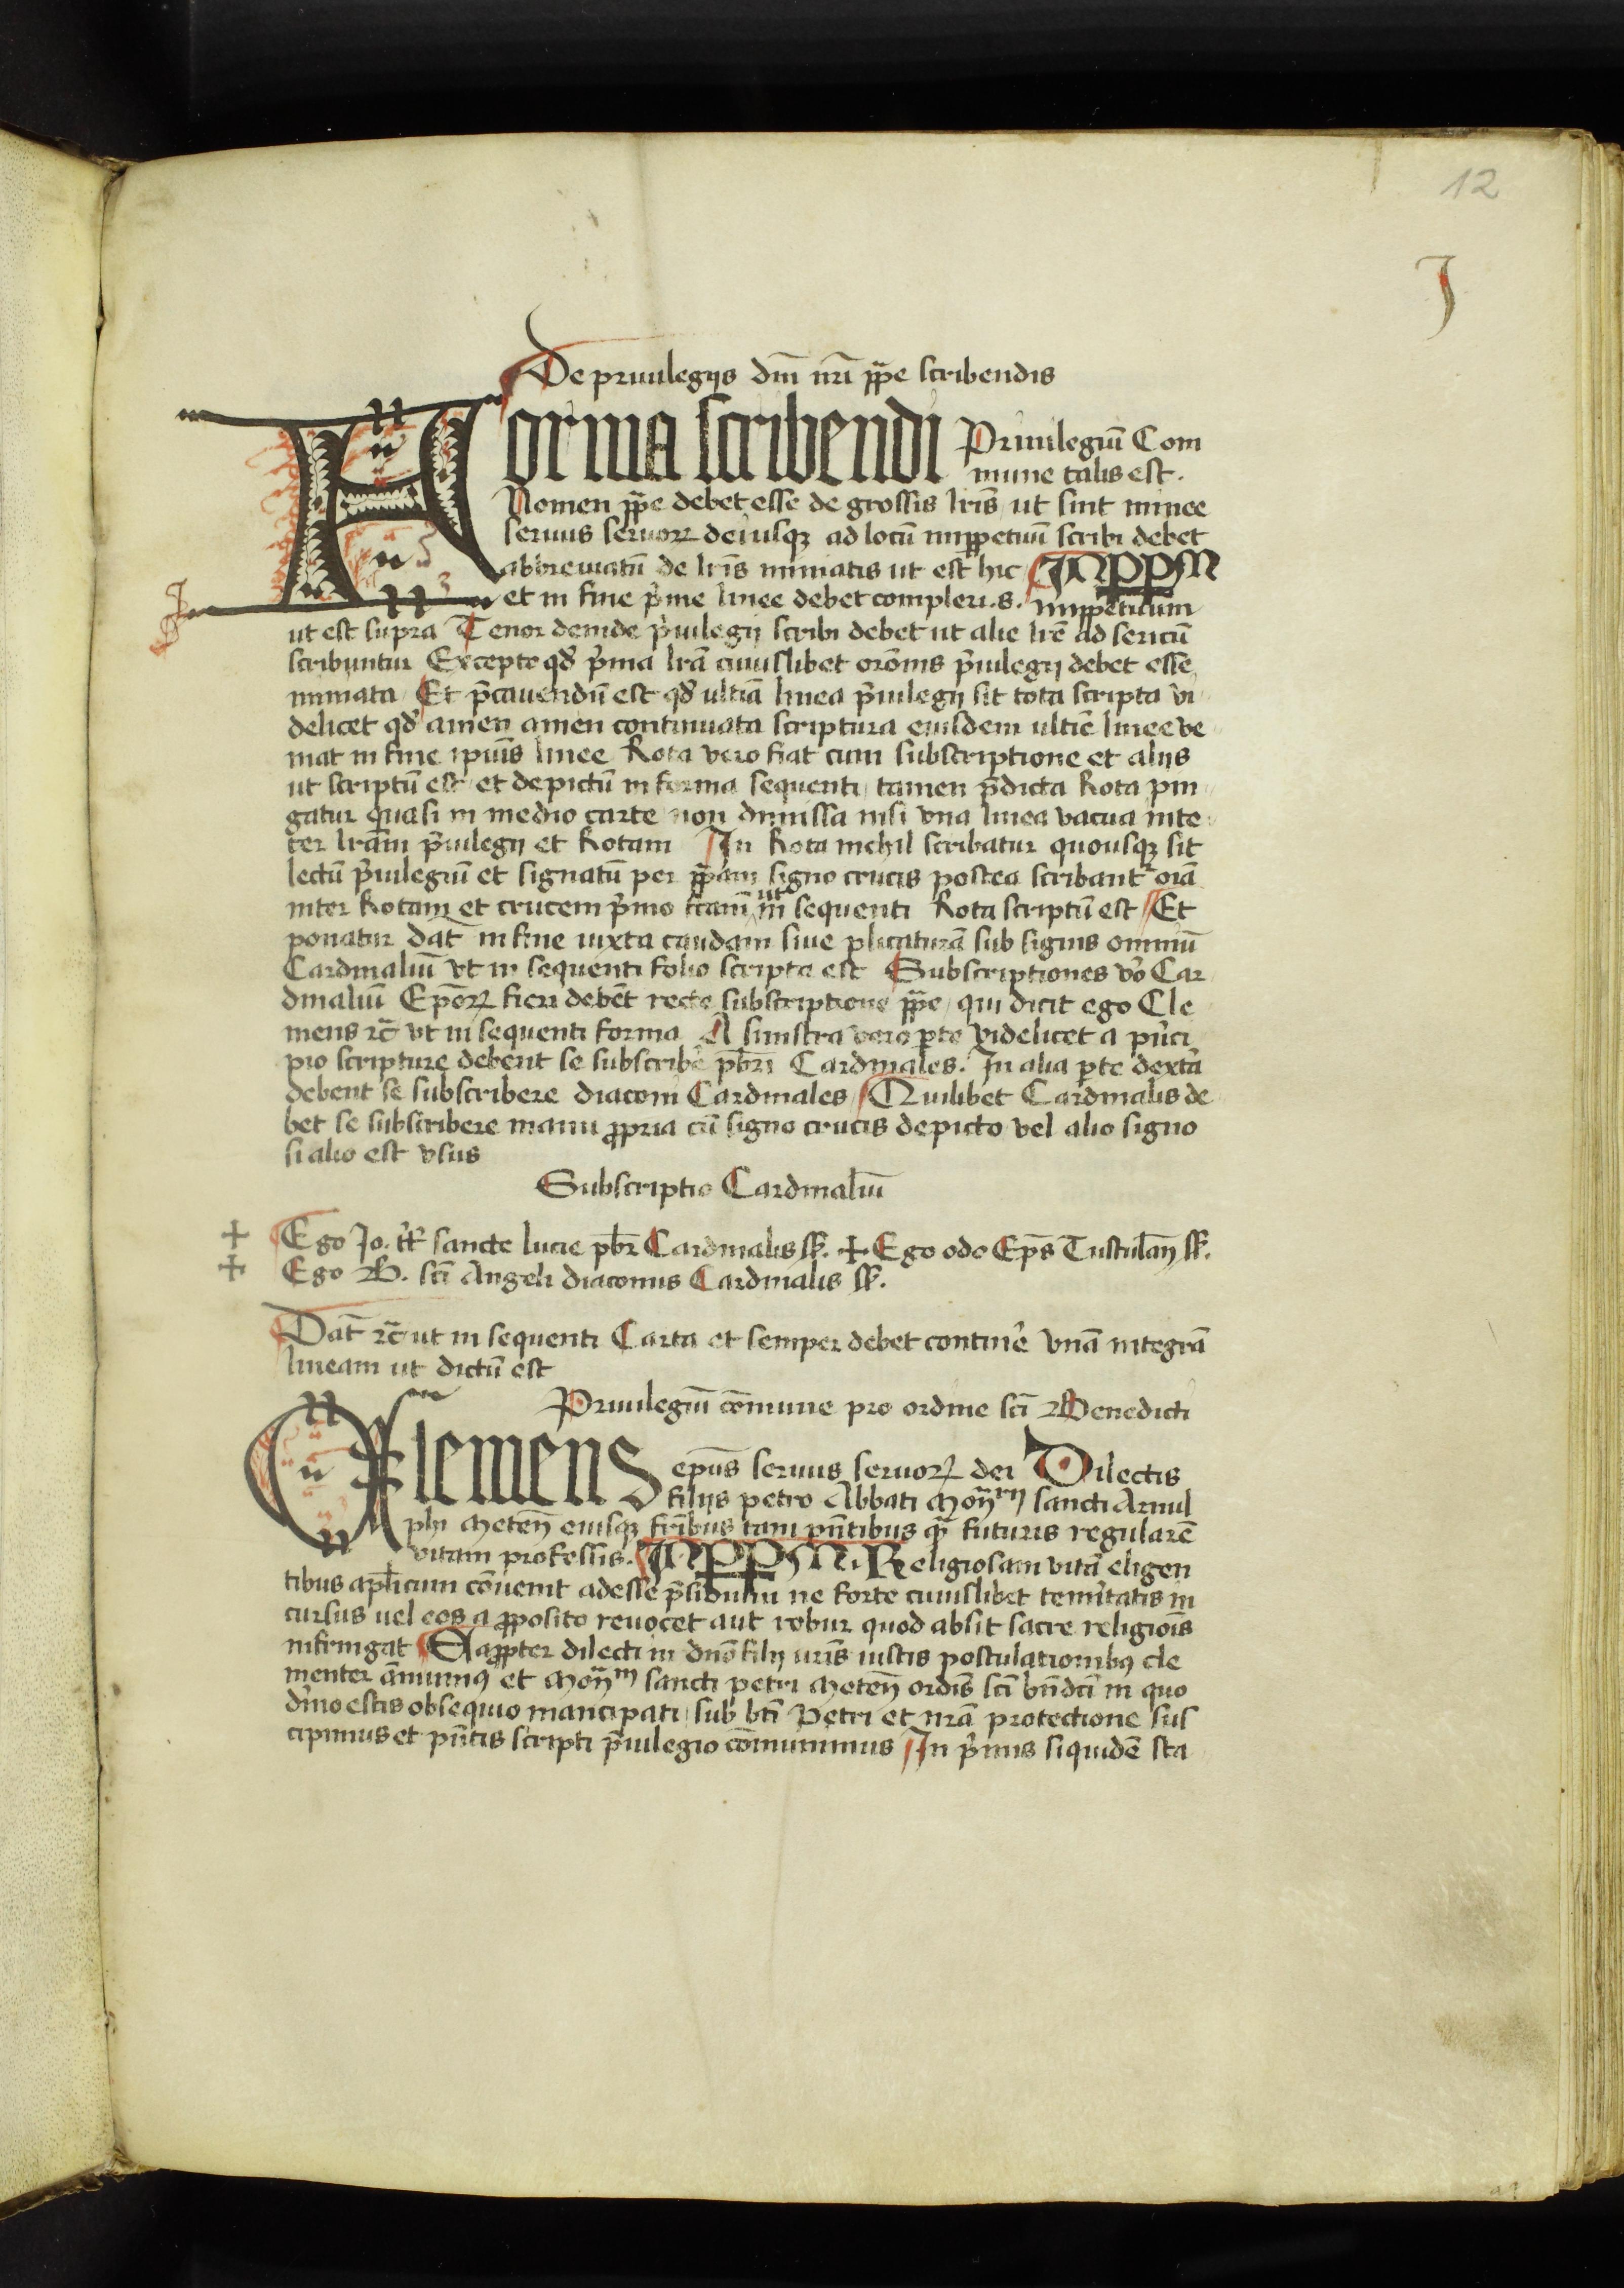 12
J
De priuilegijs dm̄ nr̄i pp̄e scribendis
Forma scribendi Priuilegiū Com
mune talis est.
Nomen pp̄e debet esse de grossis lr̄is ut sint minee
seruus seruoꝝ dei usqꝫ ad locū imppetuū scribi debet
abbreuiatū de lr̄is miniatis ut est hic INPPM
et in fine p̄me linee debet compleri .s. imppetuum
ut est supra Tenor deinde p̄uilegij scribi debet ut alie lr̄e ad sericū
scribuntur Excepto qd̓ p̄ma lr̄a cuiuslibet orōnis p̄uilegij debet esse
miniata Et p̄cauendū est qd̓ ultiā linea p̄uilegij sit tota scripta vi
delicet qd̓ amen amen continuata scriptura eiusdem ultiē linee ve
niat in fine ipīus linee Rota vero fiat cum subscriptione et alijs
ut scriptū est et depictū in forma sequenti tamen p̄dicta Rota pin
gatur quasi in medio carte non dimissa nisi vna linea vacua inte
ter lr̄am p̄uilegij et Rotam In Rota nichil scribatur quousqꝫ sit
lectū p̄uilegiū et signatū per pp̄am signo crucis postea scribant᷑ oīa
inter Rotam et crucem p̄mo ut in sequenti Rota scriptū est Et
ponatur dat̄ in fine iuxta caudam siue plicaturā sub signis omniū
Cardinaliū vt in sequenti folio scripta est Subscriptiones v̄o Car
dinaliū Ep̄oꝝ fieri debēt recte subscriptione pp̄e qui dicit ego Cle
mens ꝛc̄ vt in sequenti forma A sinistra vero ꝑte videlicet a p̄nci
pio scripture debent se subscribe᷑ pb̄ri Cardinales. In alia ꝑte dext᷑a
debent se subscribere diaconi Cardinales Quilibet Cardinalis de
bet se subscribere manu ꝓpria cū signo crucis depicto vel alio signo
si alio est vsus
Subscriptio Cardinaliū
+ Ego Jo. tt̓ sancte lucie pb̄r Cardinalis ss. + Ego odo Ep̄s Tusculan̄ ss.
+ Ego B. sc̄i Angeli diaconus Cardinalis ss.
Dat̄ ꝛc̄ ut in sequenti Carta et semper debet contine᷑ vnā integrā
lineam ut dictū est
Priuilegiū cōmune pro ordine sc̄i Benedicti
Clemens ep̄us seruus seruoꝝ dei Dilectis
filijs petro Abbati Mon̄rij sancti Arnul
phi Meten̄ eiusqꝫ fr̄ibus tam pn̄tibus qᷓ futuris regularē
vitam professis. INPPM. Religiosam vitā eligen
tibus apl̄icum cōuenit adesse p̄sidium ne forte cuiuslibet tem̓itatis in
cursus uel eos a ꝓposito reuocet aut robur quod absit sacre religiōis
infringat Eapp̄ter dilecti in dn̄o filij vr̄is iustis postulationibꝰ cle
menter ānuimꝰ et Mon̄m sancti petri Meten̄ ordīs sc̄i bn̄dc̄i in quo
diuino estis obsequio mancipati sub bt̄i Petri et nr̄a protectione sus
cipimus et pn̄tis scripti p̄uilegio cōmunimus In p̄mis siquidē sta